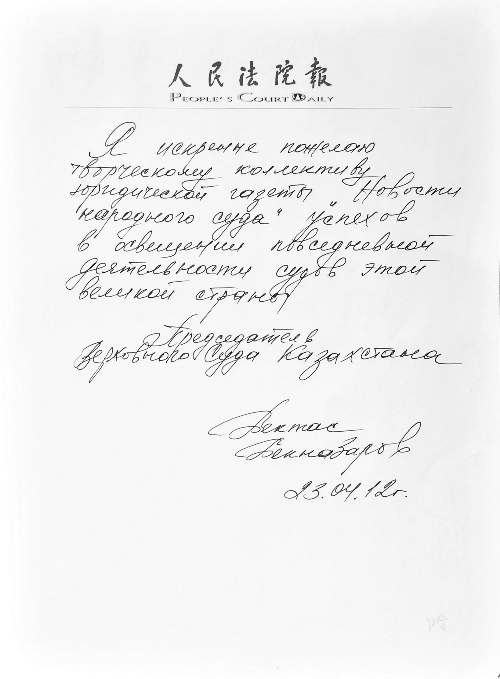 人民法院報
PEOPLE'S COURT DAILY
Я искренне пожелаю
творческому коллективу
юридической газеты "Новости
народного суда" успехов
в освещении повседневной
деятельности судов этой
великой страны
Председатель
Верховного Суда Казахстана
Бектас
Бекназаров
23.04.12г.